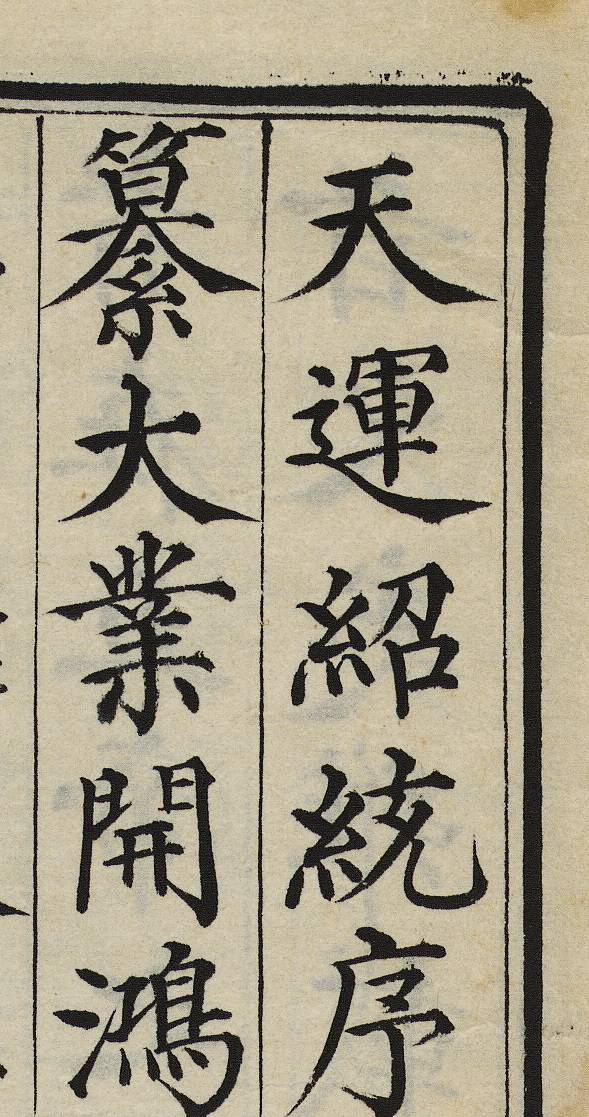 天運紹統序
纂大業開鴻